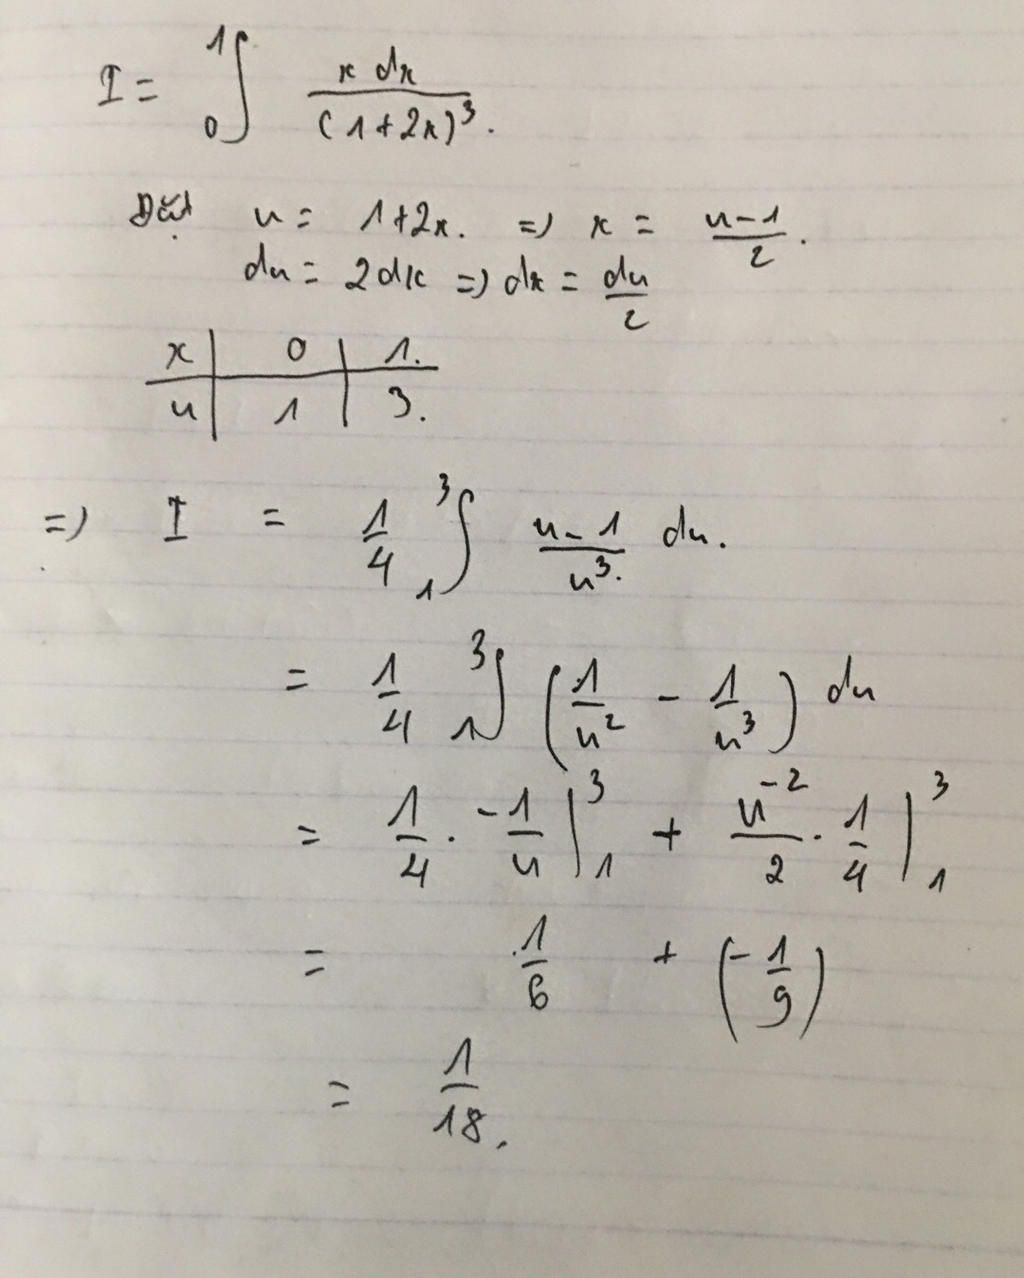 I = ∫₀¹ x dx / (1+2x)³.
Đặt u = 1+2x. => x = (u-1)/2.
du = 2dx => dx = du/2
x | 0 | 1.
u | 1 | 3.
=> I = 1/4 ₁∫³ (u-1)/u³. du.
= 1/4 ₁∫³ (1/u² - 1/u³) du
= 1/4 . -1/u |₁³ + u⁻²/2 . 1/4 |₁³
= 1/6 + (-1/9)
= 1/18.